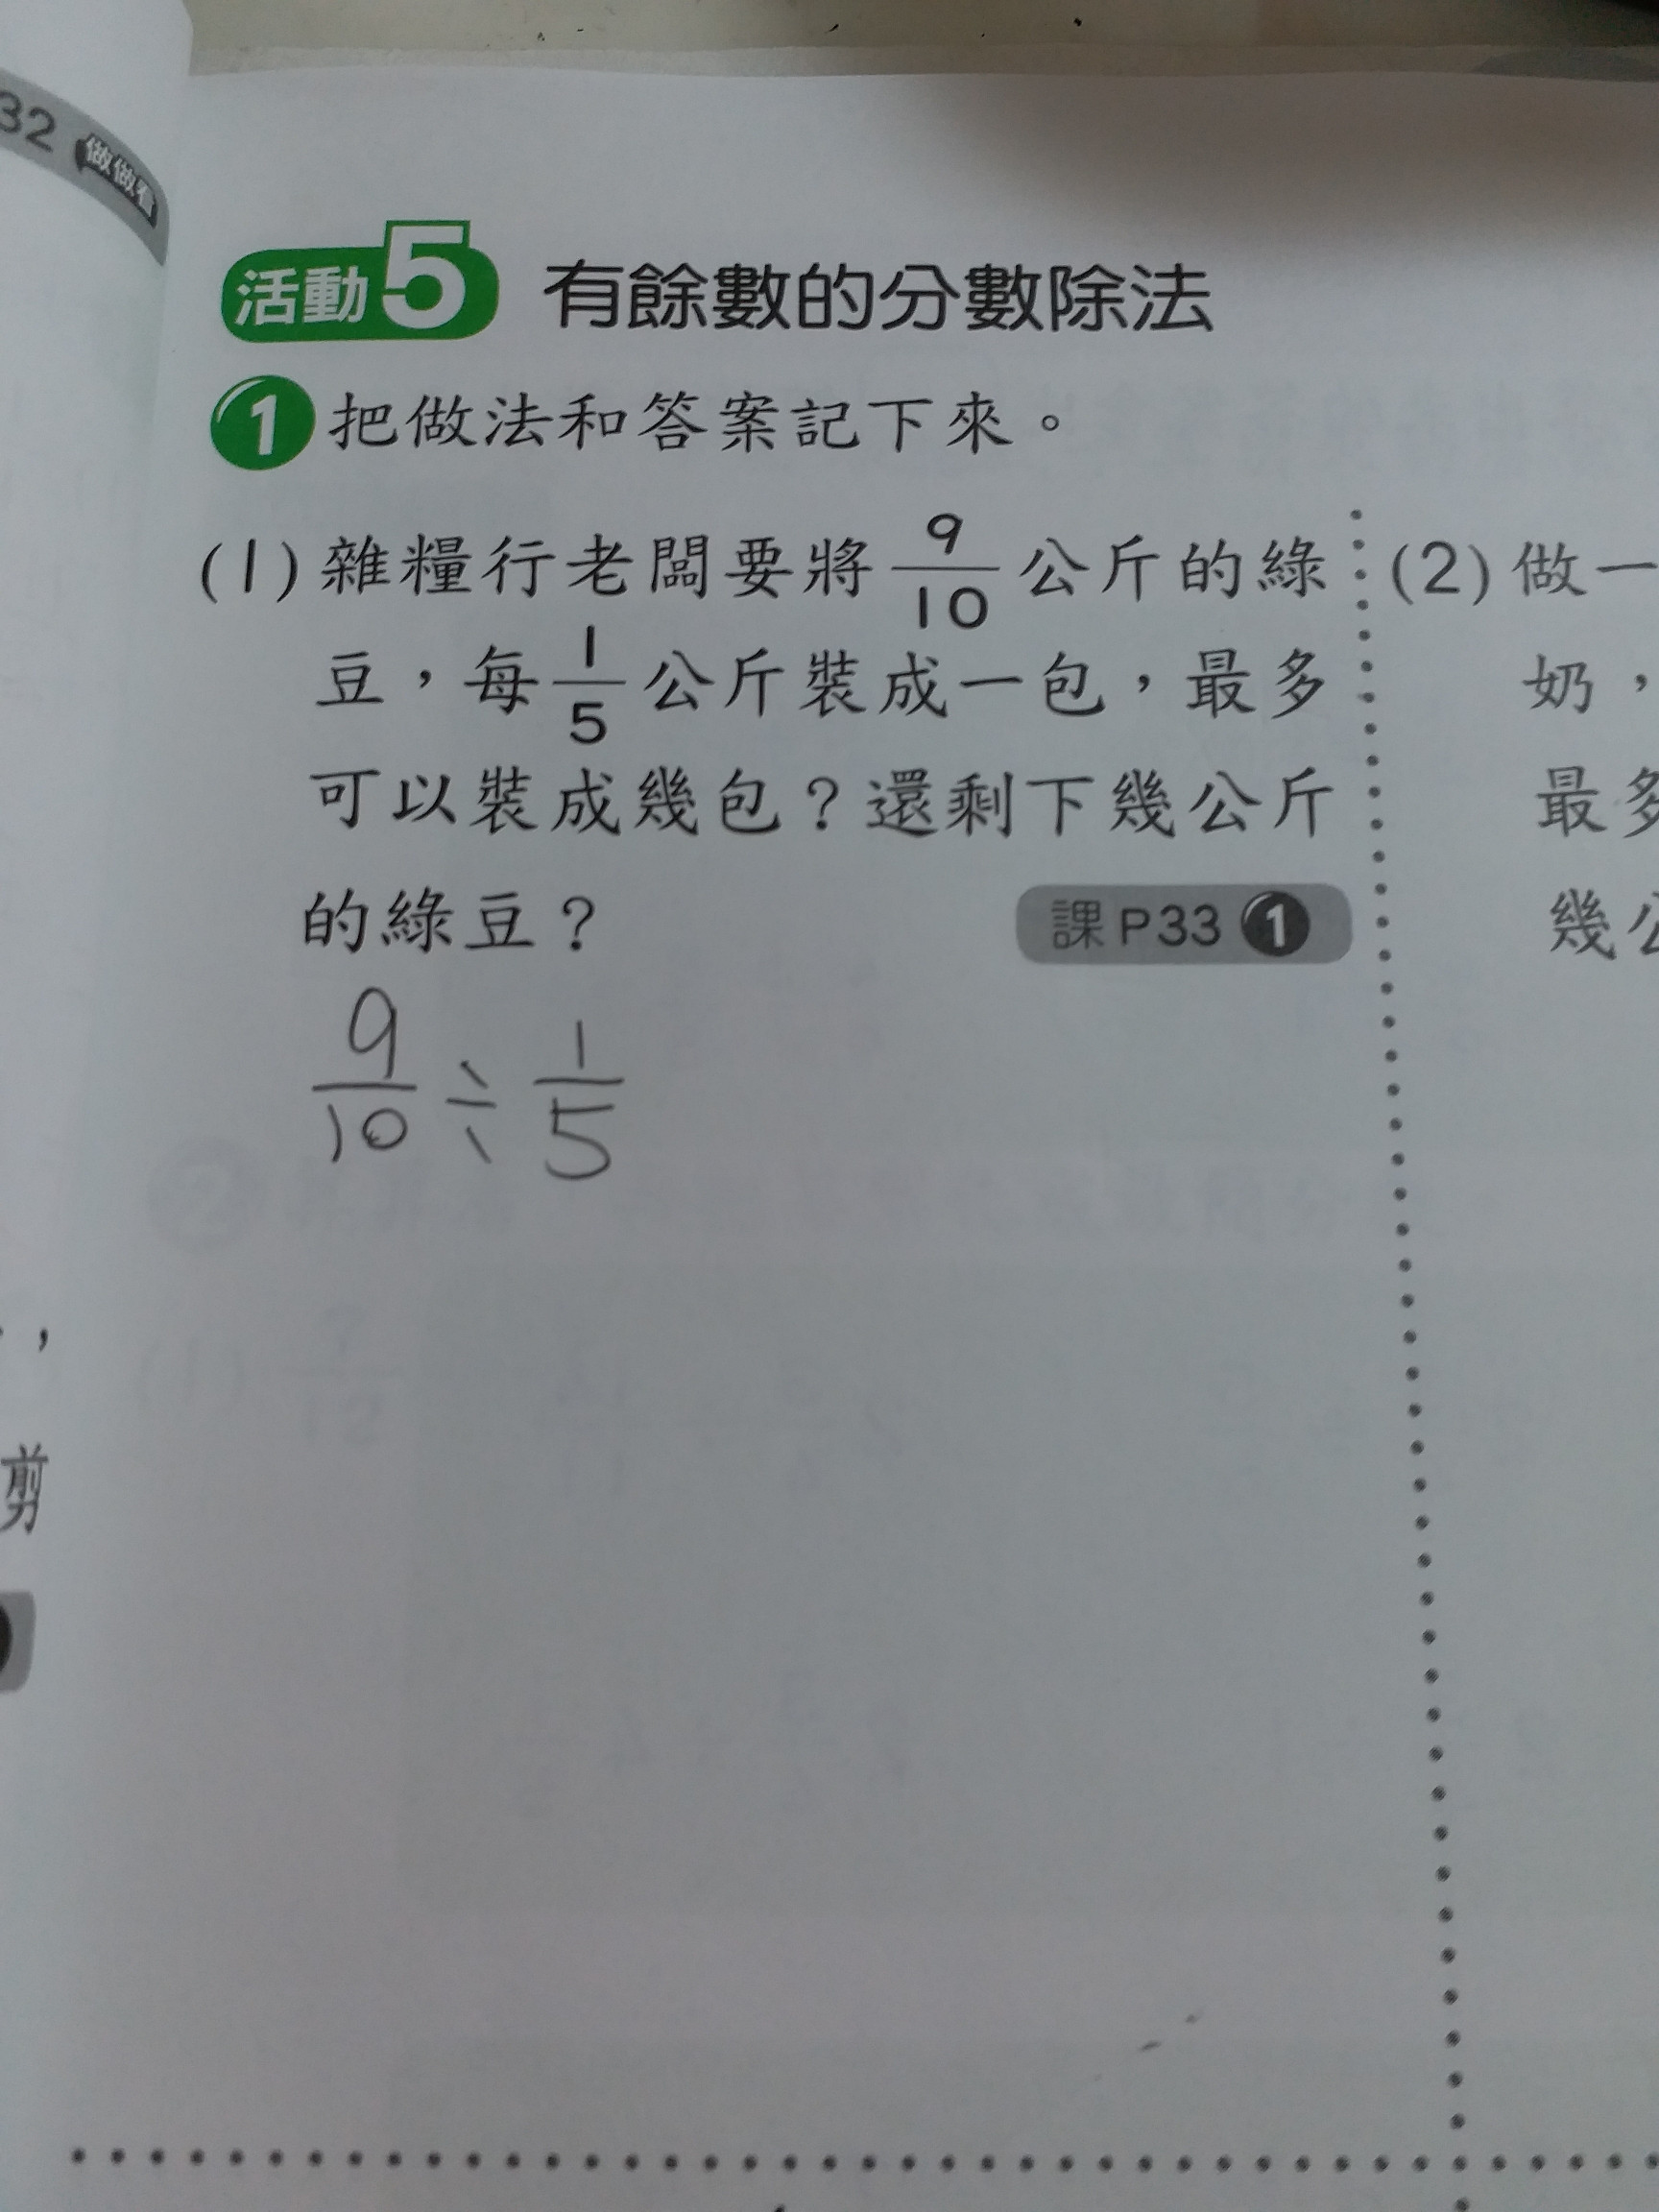 32 做做看
活動5 有餘數的分數除法
1 把做法和答案記下來。
(1) 雜糧行老闆要將 9/10 公斤的綠
豆，每 1/5 公斤裝成一包，最多
可以裝成幾包？還剩下幾公斤
的綠豆？ 課P33 1
9/10 ÷ 1/5
(2) 做一
奶，
最多
幾公
，
剪